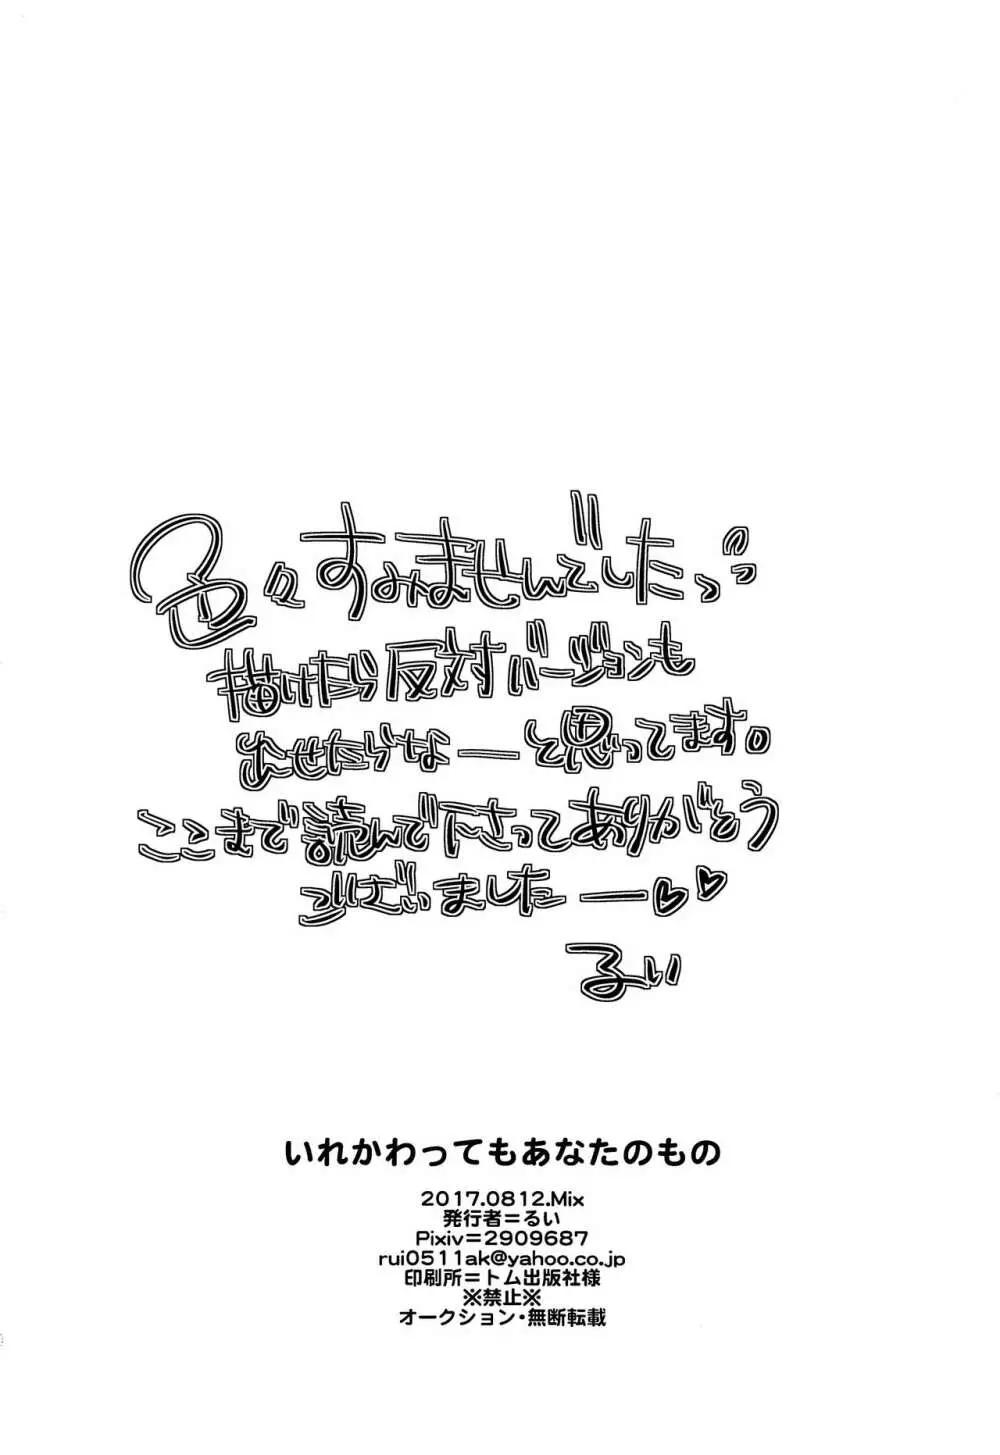 色々すみませんでしたっっ
描けたら反対バージョンも
出せたらなーと思ってます。
ここまで読んで下さってありがとう
ございましたー♥♥
るい
いれかわってもあなたのもの
2017.0812.Mix
発行者=るい
Pixiv=2909687
rui0511ak@yahoo.co.jp
印刷所=トム出版社様
※禁止※
オークション・無断転載